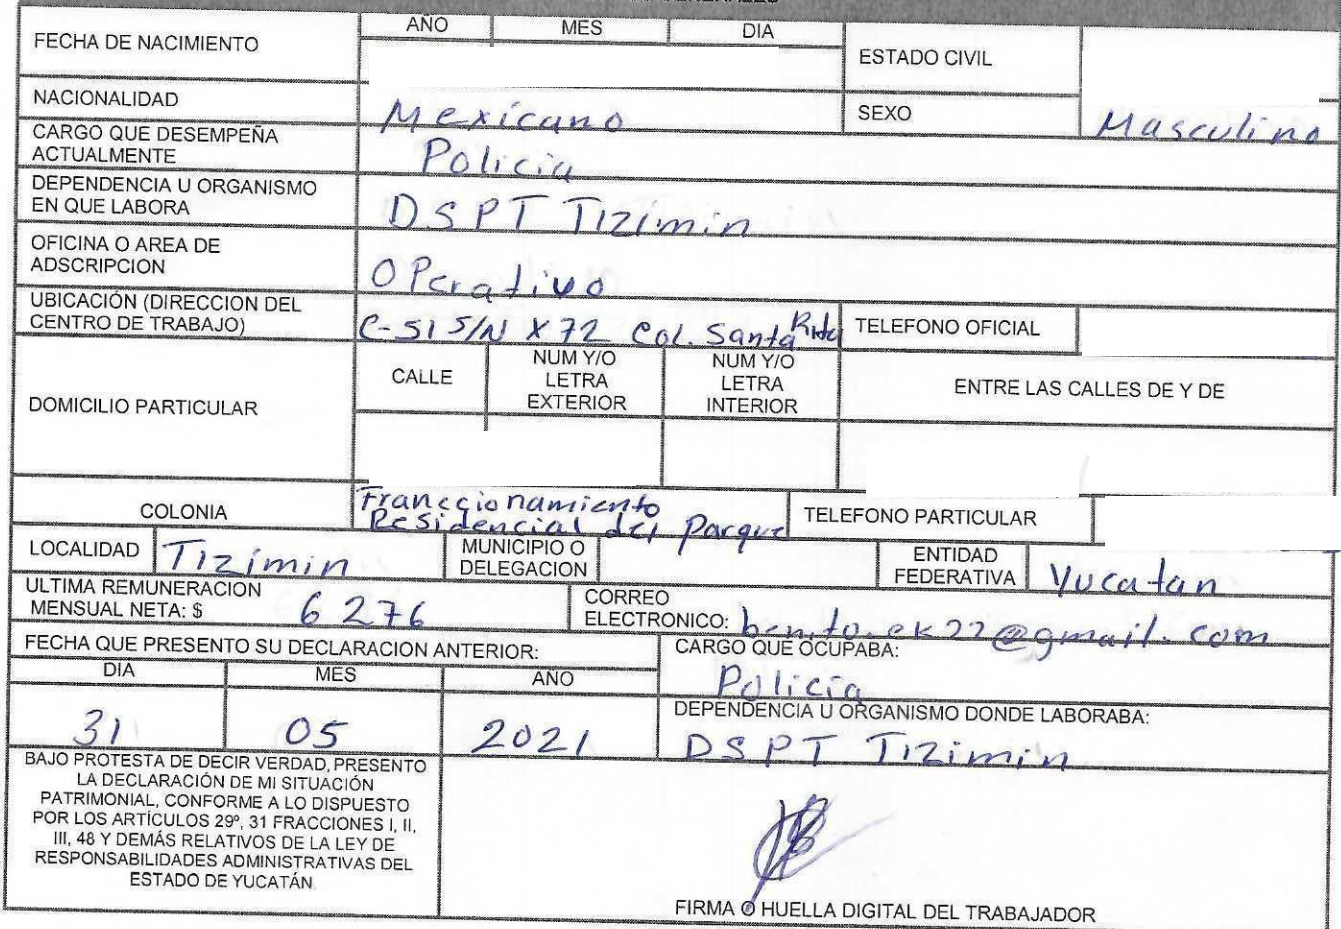 AÑO MES DIA
FECHA DE NACIMIENTO
ESTADO CIVIL
NACIONALIDAD Mexicano SEXO Masculino
CARGO QUE DESEMPEÑA
ACTUALMENTE Policia
DEPENDENCIA U ORGANISMO
EN QUE LABORA DSPT Tizimin
OFICINA O AREA DE
ADSCRIPCION OPerativo
UBICACIÓN (DIRECCION DEL
CENTRO DE TRABAJO) C-51 S/N X 72 Col. Santa Rita TELEFONO OFICIAL
DOMICILIO PARTICULAR
CALLE
NUM Y/O
LETRA
EXTERIOR
NUM Y/O
LETRA
INTERIOR
ENTRE LAS CALLES DE Y DE
COLONIA
Franccionamiento
Residencial del Parque
TELEFONO PARTICULAR
LOCALIDAD Tizimin
MUNICIPIO O
DELEGACION
ENTIDAD
FEDERATIVA Yucatan
ULTIMA REMUNERACION
MENSUAL NETA: $ 6 276
CORREO
ELECTRONICO: benito.ek22@gmail.com
FECHA QUE PRESENTO SU DECLARACION ANTERIOR:
DIA MES AÑO
31 05 2021
CARGO QUE OCUPABA:
Policia
DEPENDENCIA U ORGANISMO DONDE LABORABA:
DSPT Tizimin
BAJO PROTESTA DE DECIR VERDAD, PRESENTO
LA DECLARACIÓN DE MI SITUACIÓN
PATRIMONIAL, CONFORME A LO DISPUESTO
POR LOS ARTÍCULOS 29º, 31 FRACCIONES I, II,
III, 48 Y DEMÁS RELATIVOS DE LA LEY DE
RESPONSABILIDADES ADMINISTRATIVAS DEL
ESTADO DE YUCATÁN
FIRMA O HUELLA DIGITAL DEL TRABAJADOR